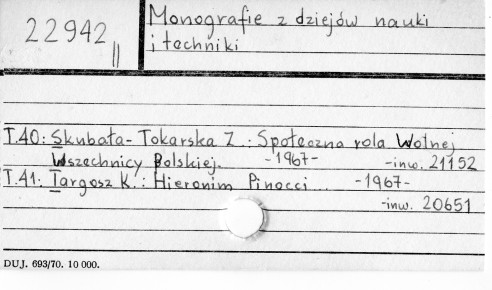 22942 II
Monografie z dziejów nauki
i techniki
T.40: Skubała-Tokarska Z.: Społeczna rola Wolnej
Wszechnicy Polskiej. -1967- -inw. 21152
T.41: Targosz K.: Hieronim Pinocci... -1967-
-inw. 20651
DUJ. 693/70. 10 000.